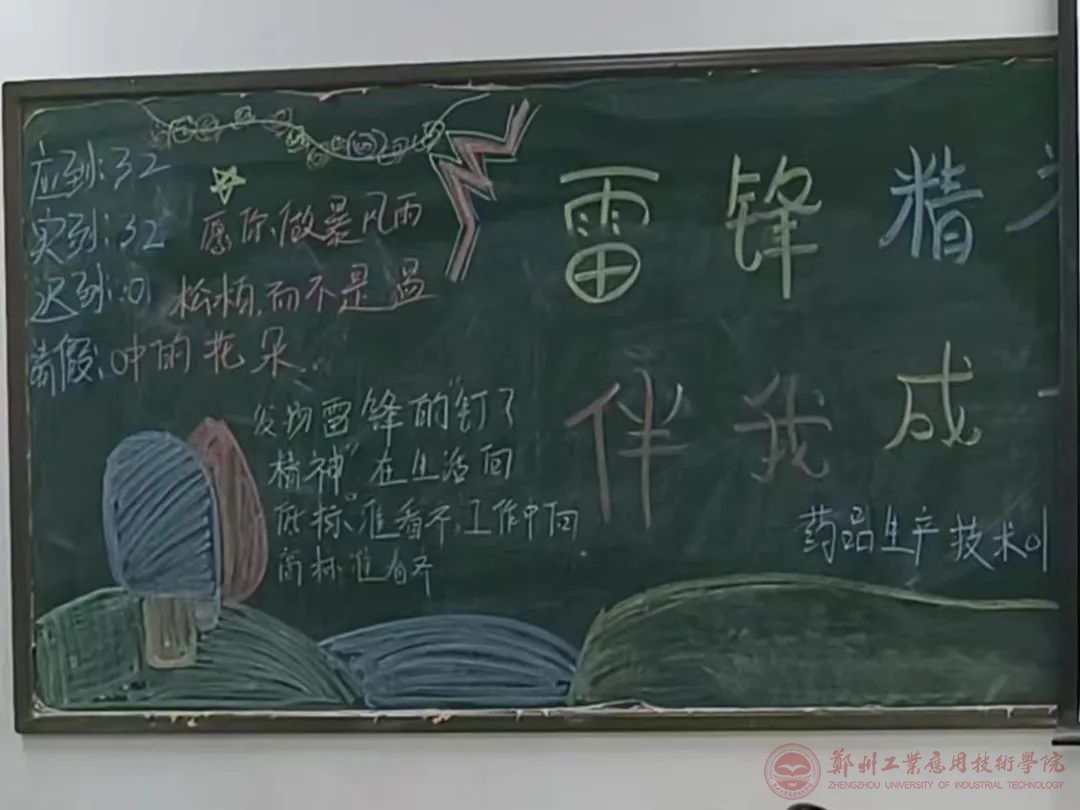 应到:32
实到:32
迟到:01
请假:0
愿你做暴风雨
松柏,而不是温
中的花朵...
发扬雷锋的"钉子
精神"在生活向
低标准看齐,工作中向
高标准看齐
雷锋精
伴我成
药品生产技术01
鄭州工業應用技術學院
ZHENGZHOU UNIVERSITY OF INDUSTRIAL TECHNOLOGY